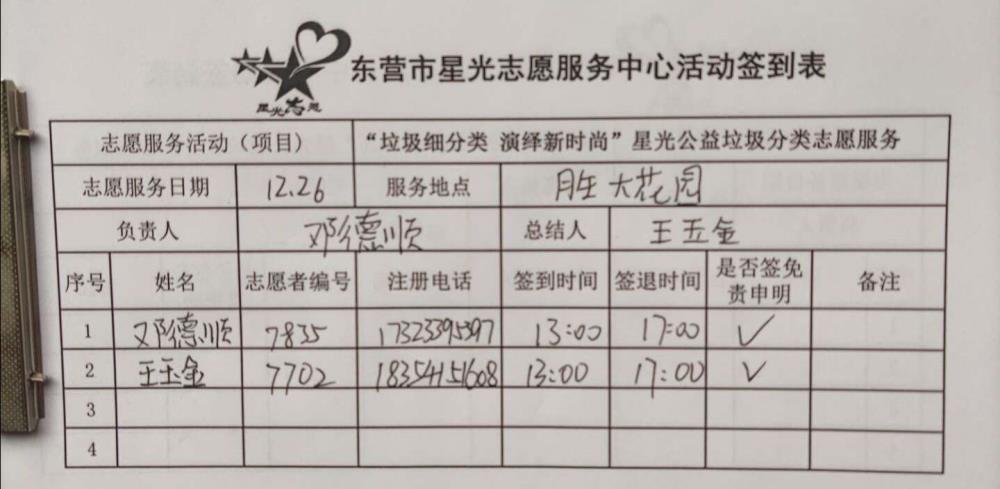 星光志愿
东营市星光志愿服务中心活动签到表
志愿服务活动（项目） “垃圾细分类 演绎新时尚”星光公益垃圾分类志愿服务
志愿服务日期 12.26 服务地点 胜大花园
负责人 邓德顺 总结人 王五金
序号 姓名 志愿者编号 注册电话 签到时间 签退时间 是否签免责申明 备注
1 邓德顺 7835 17323395397 13:00 17:00 ✓
2 王玉金 7702 18354151608 13:00 17:00 ✓
3
4